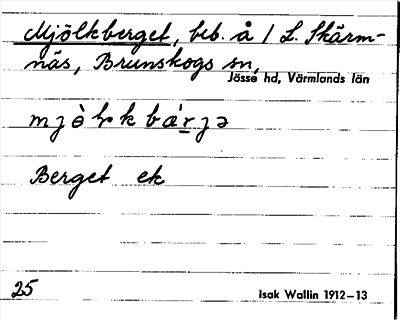 Mjölkberget, beb. å 1 L. Skärm-
näs, Brunskogs sn,
Jösse hd, Värmlands län
Berget ek
25
Isak Wallin 1912–13